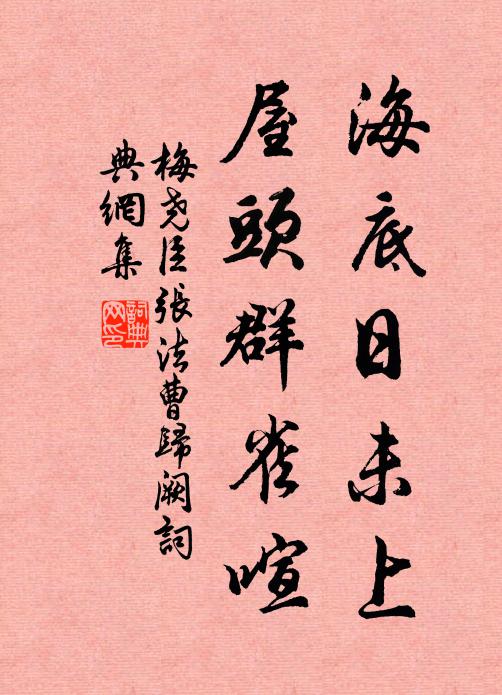 海底日未上
屋頭群雀喧
梅堯臣張法曹歸闕詞
典網集
詞典
网印